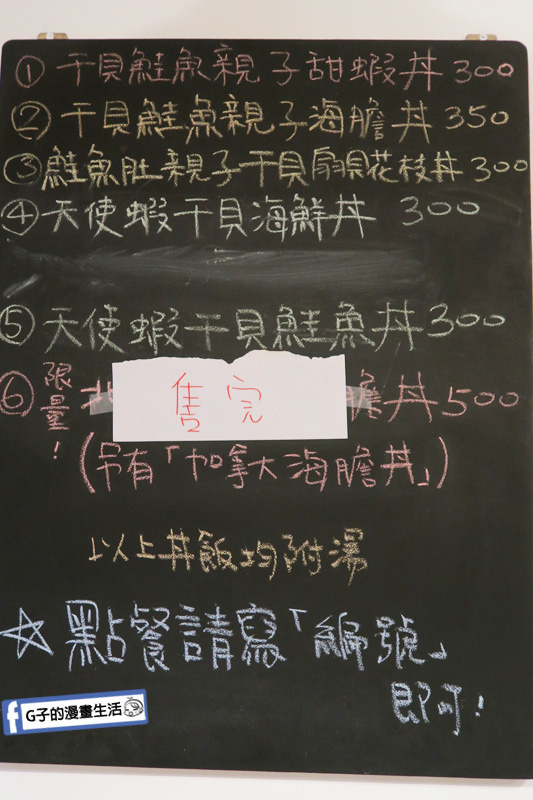 ① 干貝鮭魚親子甜蝦丼 300
② 干貝鮭魚親子海膽丼 350
③ 鮭魚肚親子干貝扇貝花枝丼 300
④ 天使蝦干貝海鮮丼 300
⑤ 天使蝦干貝鮭魚丼 300
⑥ 限量! 售完 膽丼 500
(另有「加拿大海膽丼」)
以上丼飯均附湯
☆點餐請寫「編號」
即可!
G子的漫畫生活